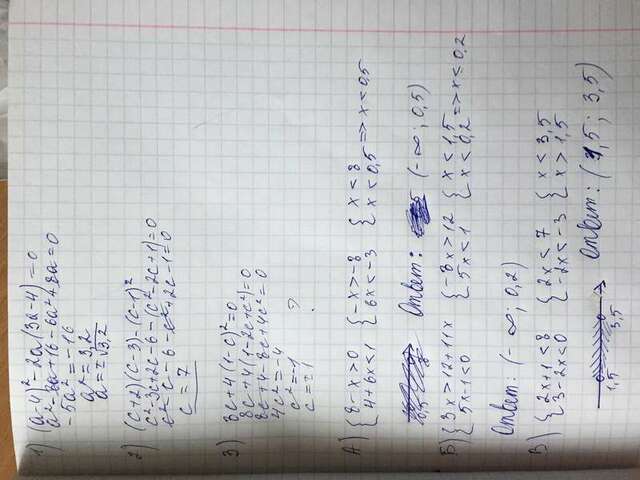 1) (a-4)² - 2a(3a-4) = 0
a² - 8a + 16 - 6a² + 8a = 0
-5a² = -16
a² = 3,2
a = ±√3,2
2) (c+2)(c-3) - (c-1)²
c² - 3c + 2c - 6 - (c² - 2c + 1) = 0
c² - c - 6 - c² + 2c - 1 = 0
c = 7
3) 8c + 4(1-c)² = 0
8c + 4(1 - 2c + c²) = 0
8c + 4 - 8c + 4c² = 0
4c² = -4
c² = -1
c = ±1 ?
А) { 8-x>0 { -x>-8 { x<8
4+6x<1 6x<-3 x<0,5 => x<0,5
Ответ: (-∞; 0,5)
Б) { 3x>12+11x { -8x>12 { x<1,5
5x-1<0 5x<1 x<0,2 => x<0,2
Ответ: (-∞; 0,2)
В) { 2x+1<8 { 2x<7 { x<3,5
3-2x<0 -2x<-3 x>1,5
1,5 3,5 Ответ: (1,5; 3,5)